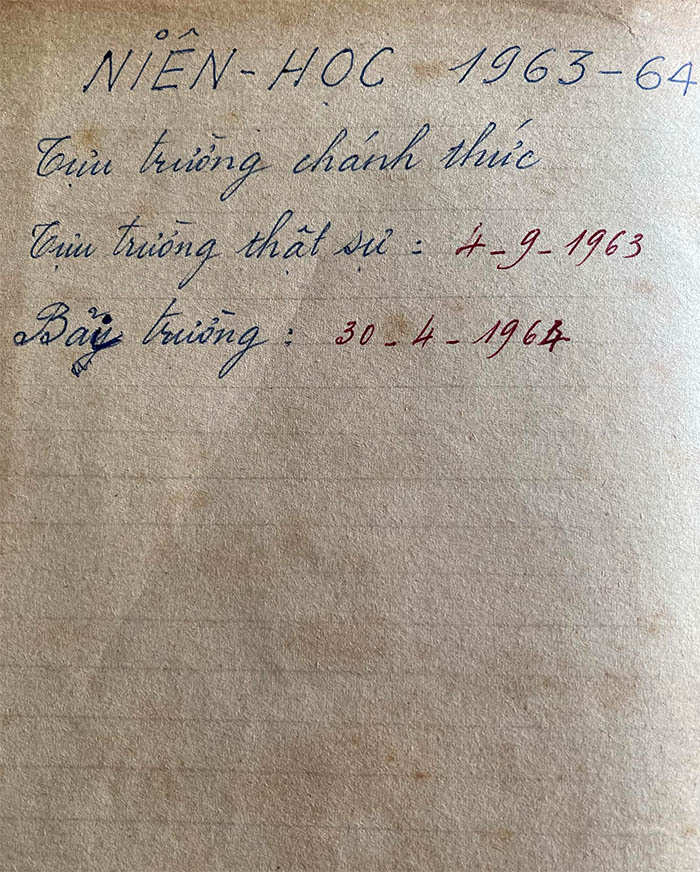 NIÊN-HỌC 1963-64
Tựu trường chánh thức
Tựu trường thật sự : 4-9-1963
Bảy trường : 30-4-1964